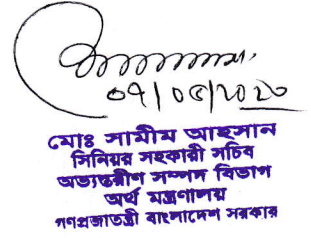 ০৭/০৫/২০২০
মোঃ সামীম আহসান
সিনিয়র সহকারী সচিব
অভ্যন্তরীণ সম্পদ বিভাগ
অর্থ মন্ত্রণালয়
গণপ্রজাতন্ত্রী বাংলাদেশ সরকার